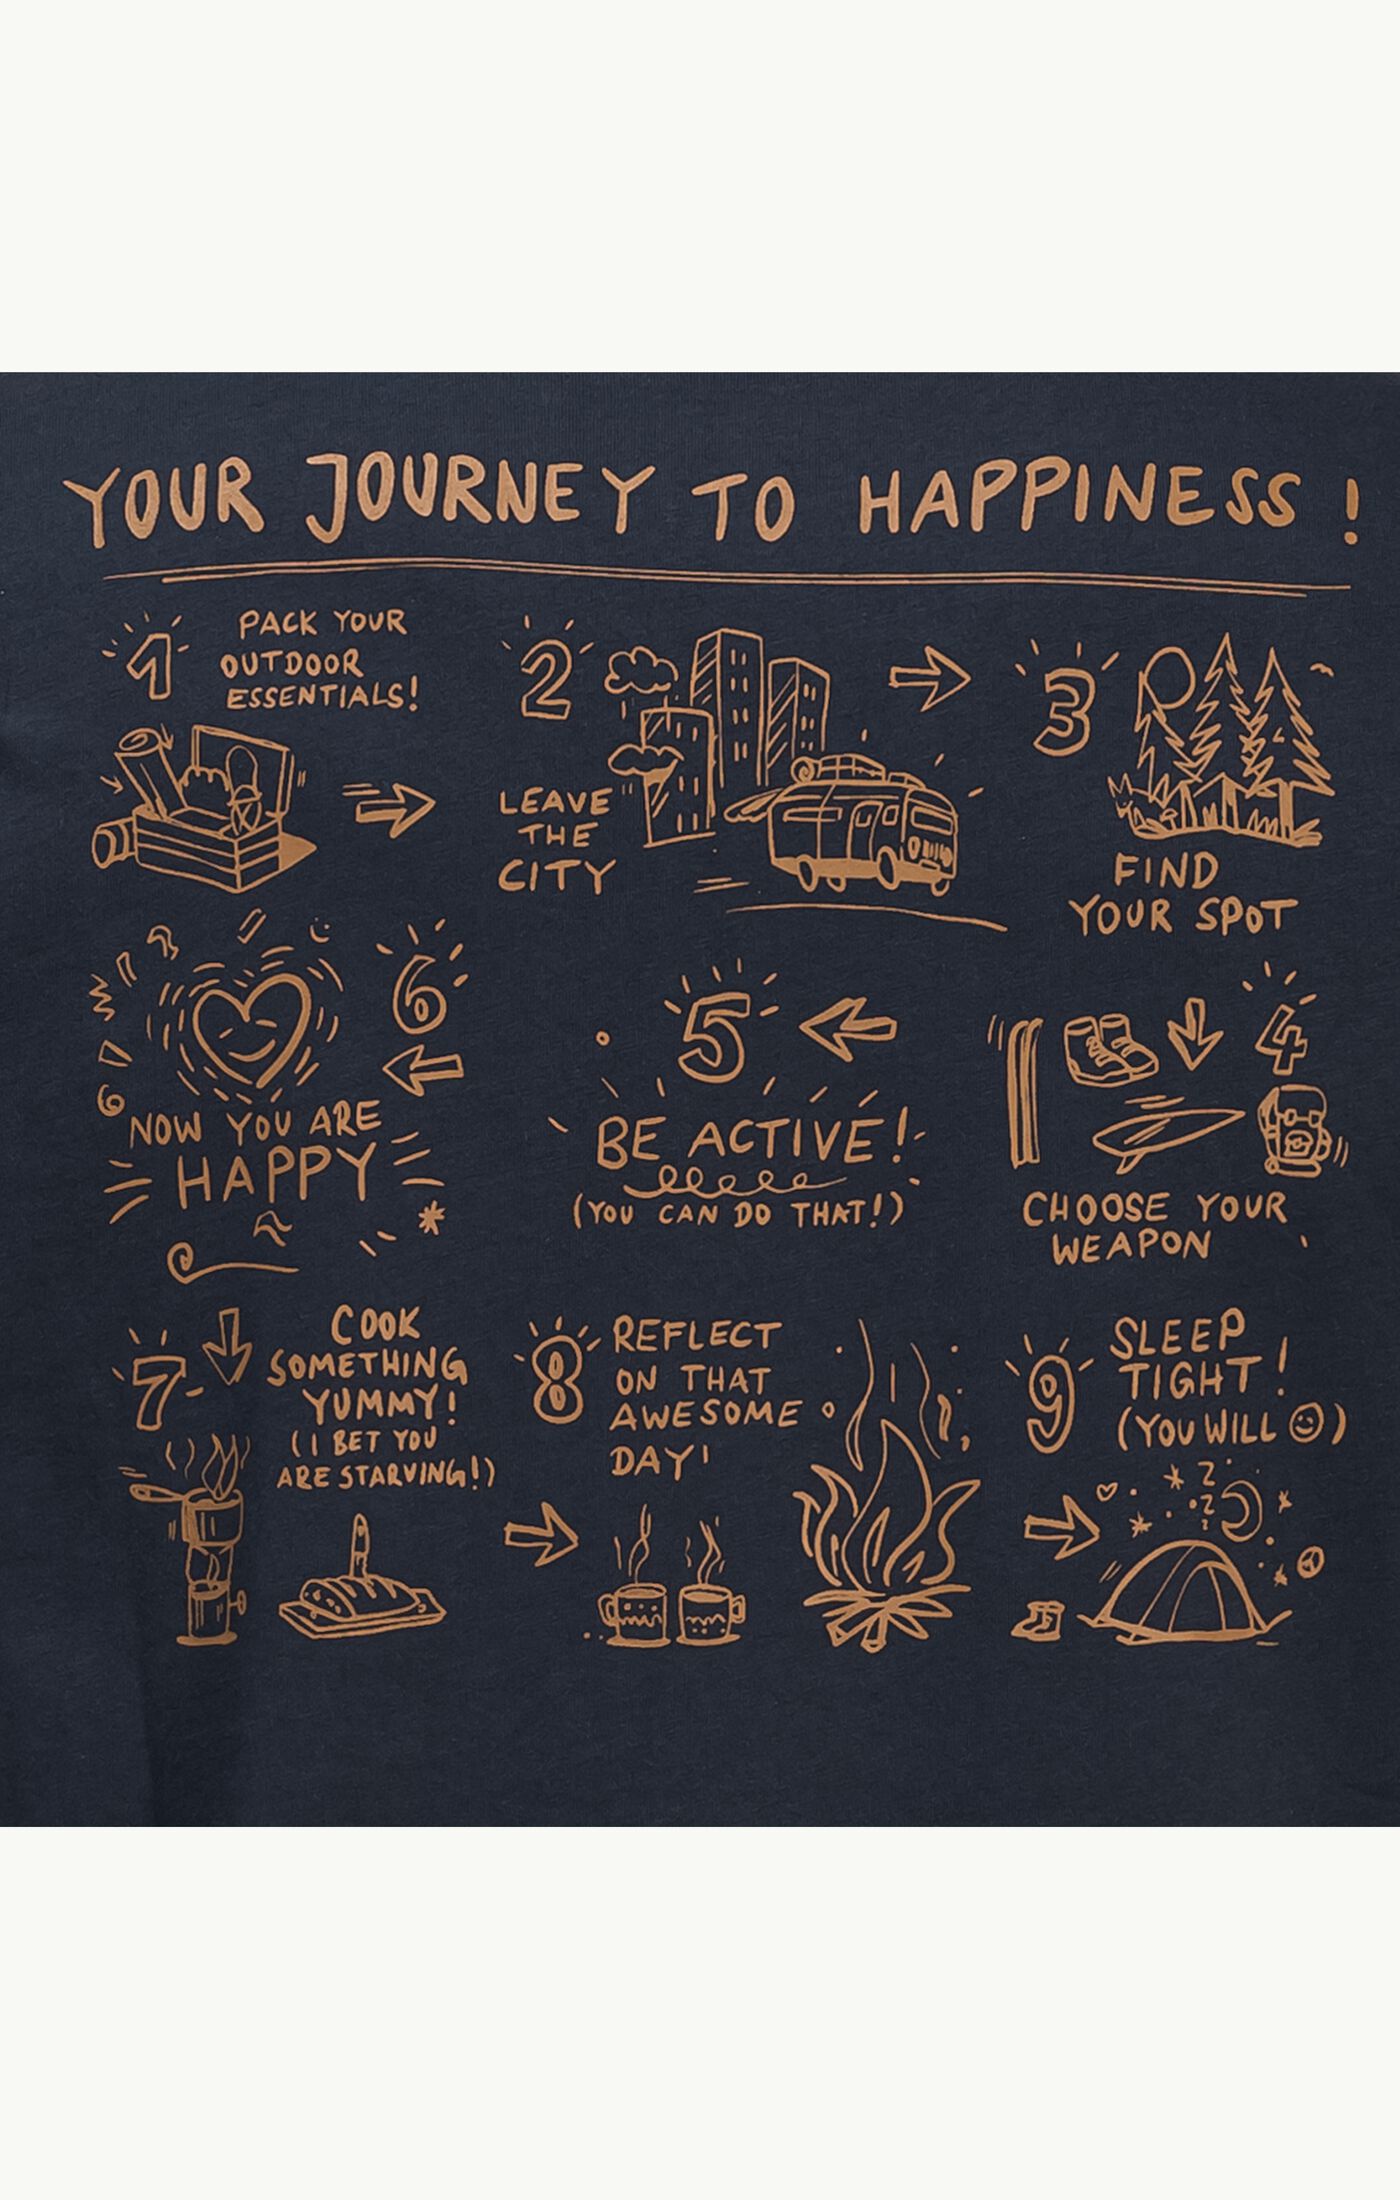 YOUR JOURNEY TO HAPPINESS!
1
PACK YOUR
OUTDOOR
ESSENTIALS!
2
LEAVE
THE
CITY
3
FIND
YOUR SPOT
4
CHOOSE YOUR
WEAPON
5
BE ACTIVE!
(YOU CAN DO THAT!)
6
NOW YOU ARE
HAPPY
7
COOK
SOMETHING
YUMMY!
(I BET YOU
ARE STARVING!)
8
REFLECT
ON THAT
AWESOME
DAY!
9
SLEEP
TIGHT!
(YOU WILL ☺)
Z
Z
Z